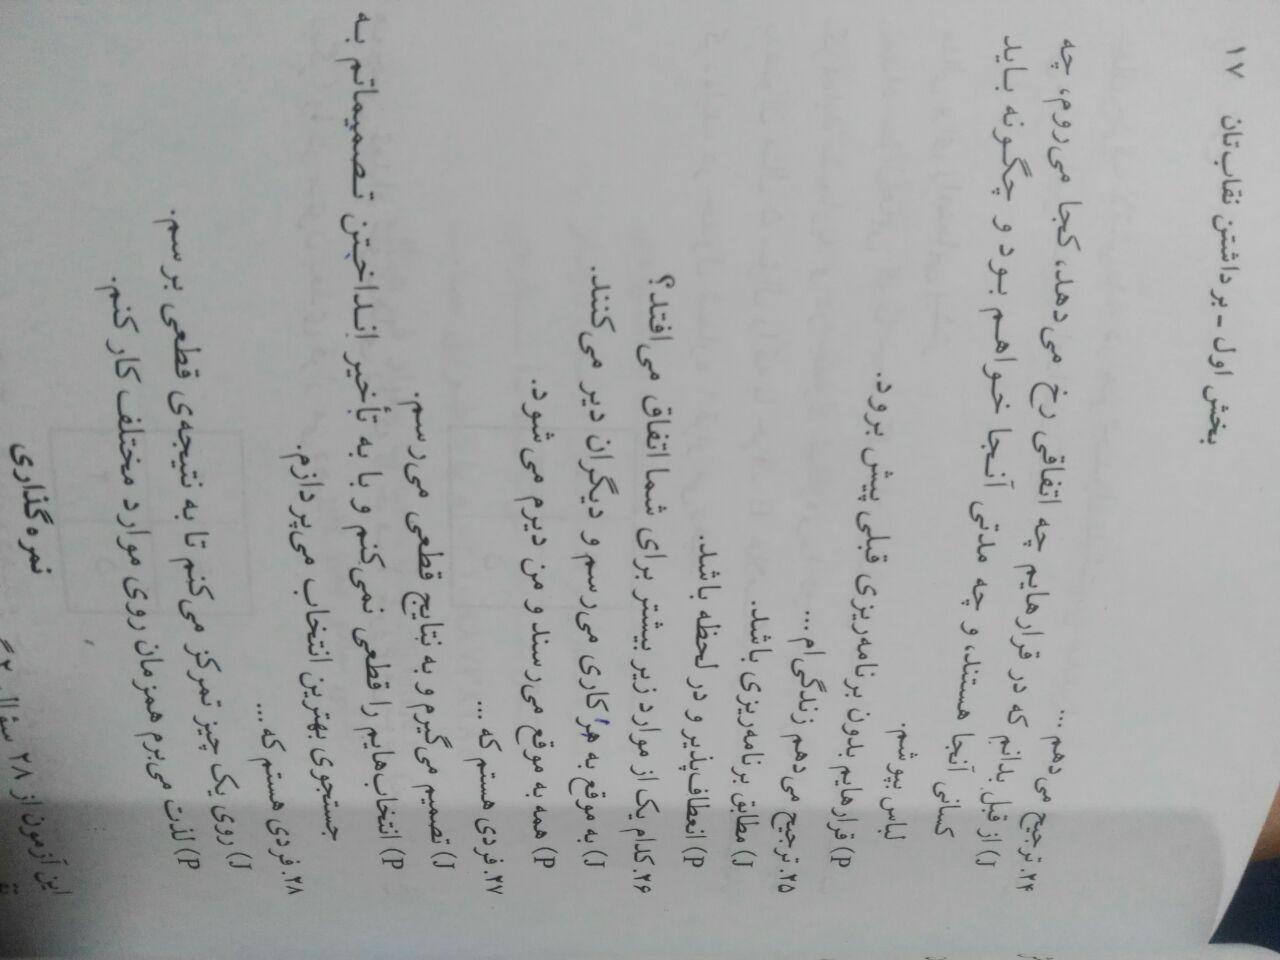 بخش اول - برداشتن نقاب‌تان ۱۷
۲۴. ترجیح می‌دهم ...
J) از قبل بدانم که در قرارهایم چه اتفاقی رخ می‌دهد، کجا می‌روم، چه
کسانی آنجا هستند، و چه مدتی آنجا خواهم بود و چگونه باید
لباس بپوشم.
P) قرارهایم بدون برنامه‌ریزی قبلی پیش برود.
۲۵. ترجیح می‌دهم زندگی‌ام ...
J) مطابق برنامه‌ریزی باشد.
P) انعطاف‌پذیر و در لحظه باشد.
۲۶. کدام یک از موارد زیر بیشتر برای شما اتفاق می‌افتد؟
J) به موقع به هر کاری می‌رسم و دیگران دیر می‌کنند.
P) همه به موقع می‌رسند و من دیرم می‌شود.
۲۷. فردی هستم که ...
J) تصمیم می‌گیرم و به نتایج قطعی می‌رسم.
P) انتخاب‌هایم را قطعی نمی‌کنم و با به تأخیر انداختن تصمیماتم به
جستجوی بهترین انتخاب می‌پردازم.
۲۸. فردی هستم که ...
J) روی یک چیز تمرکز می‌کنم تا به نتیجه‌ی قطعی برسم.
P) لذت می‌برم همزمان روی موارد مختلف کار کنم.
نمره‌گذاری
این آزمون از ۲۸ سؤال